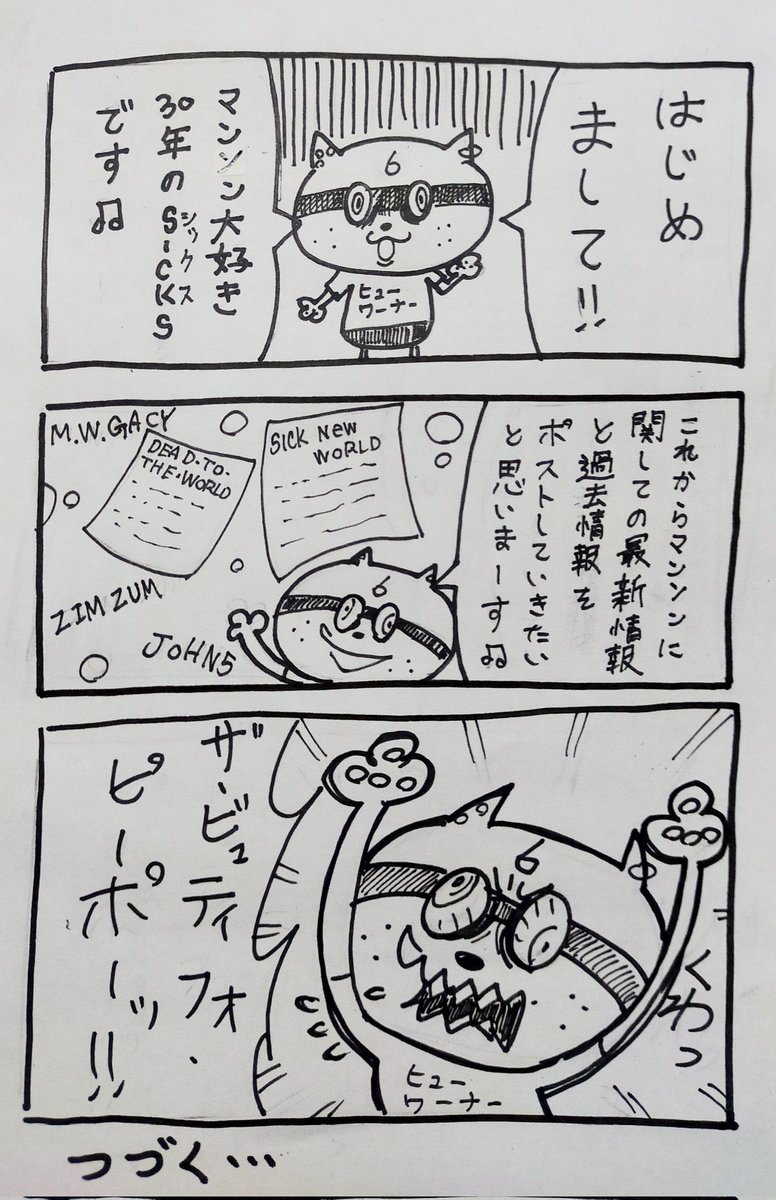 はじめ
まして!!
6
マンソン大好き
30年のSiCKS
シックス
です♫
ヒュー
ワーナー
これからマンソンに
関しての最新情報
と過去情報を
ポストしていきたい
と思いまーす♫
M.W.GACY
DEAD・TO・
THE・WORLD
SICK NEW
WORLD
ZIM ZUM
JOHN5
6
くわっ
6
ザ・ビュティフォ・
ピーポーッ!!
ヒュー
ワーナー
つづく…